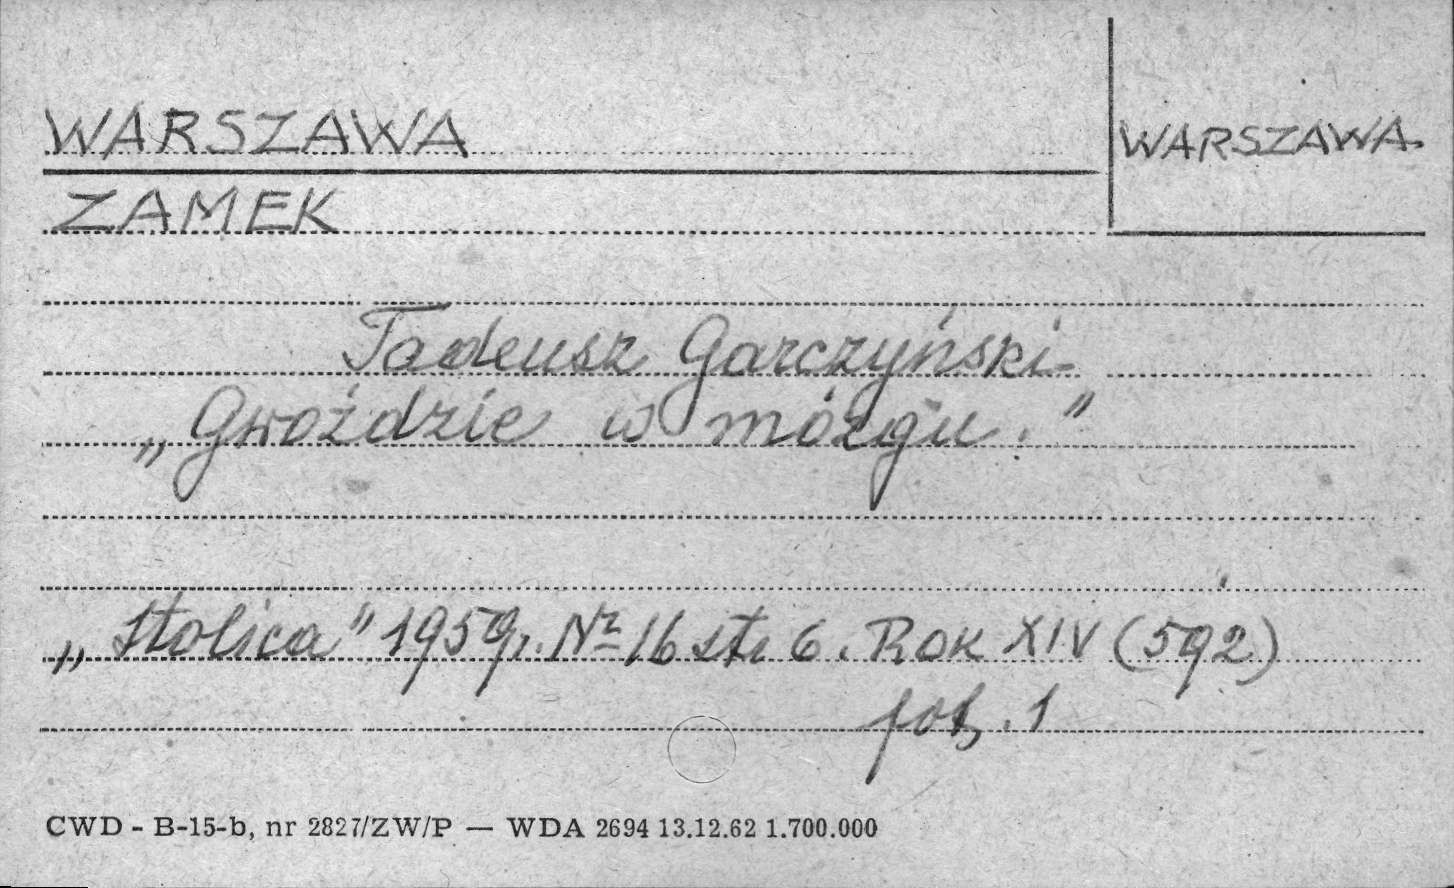 WARSZAWA
WARSZAWA.
ZAMEK
Tadeusz Garczyński
„Gwoździe w mózgu."
„Stolica" 1959r. Nr 16 str 6. Rok XIV (592)
fot. 1
CWD - B-15-b, nr 2827/ZW/P — WDA 2694 13.12.62 1.700.000